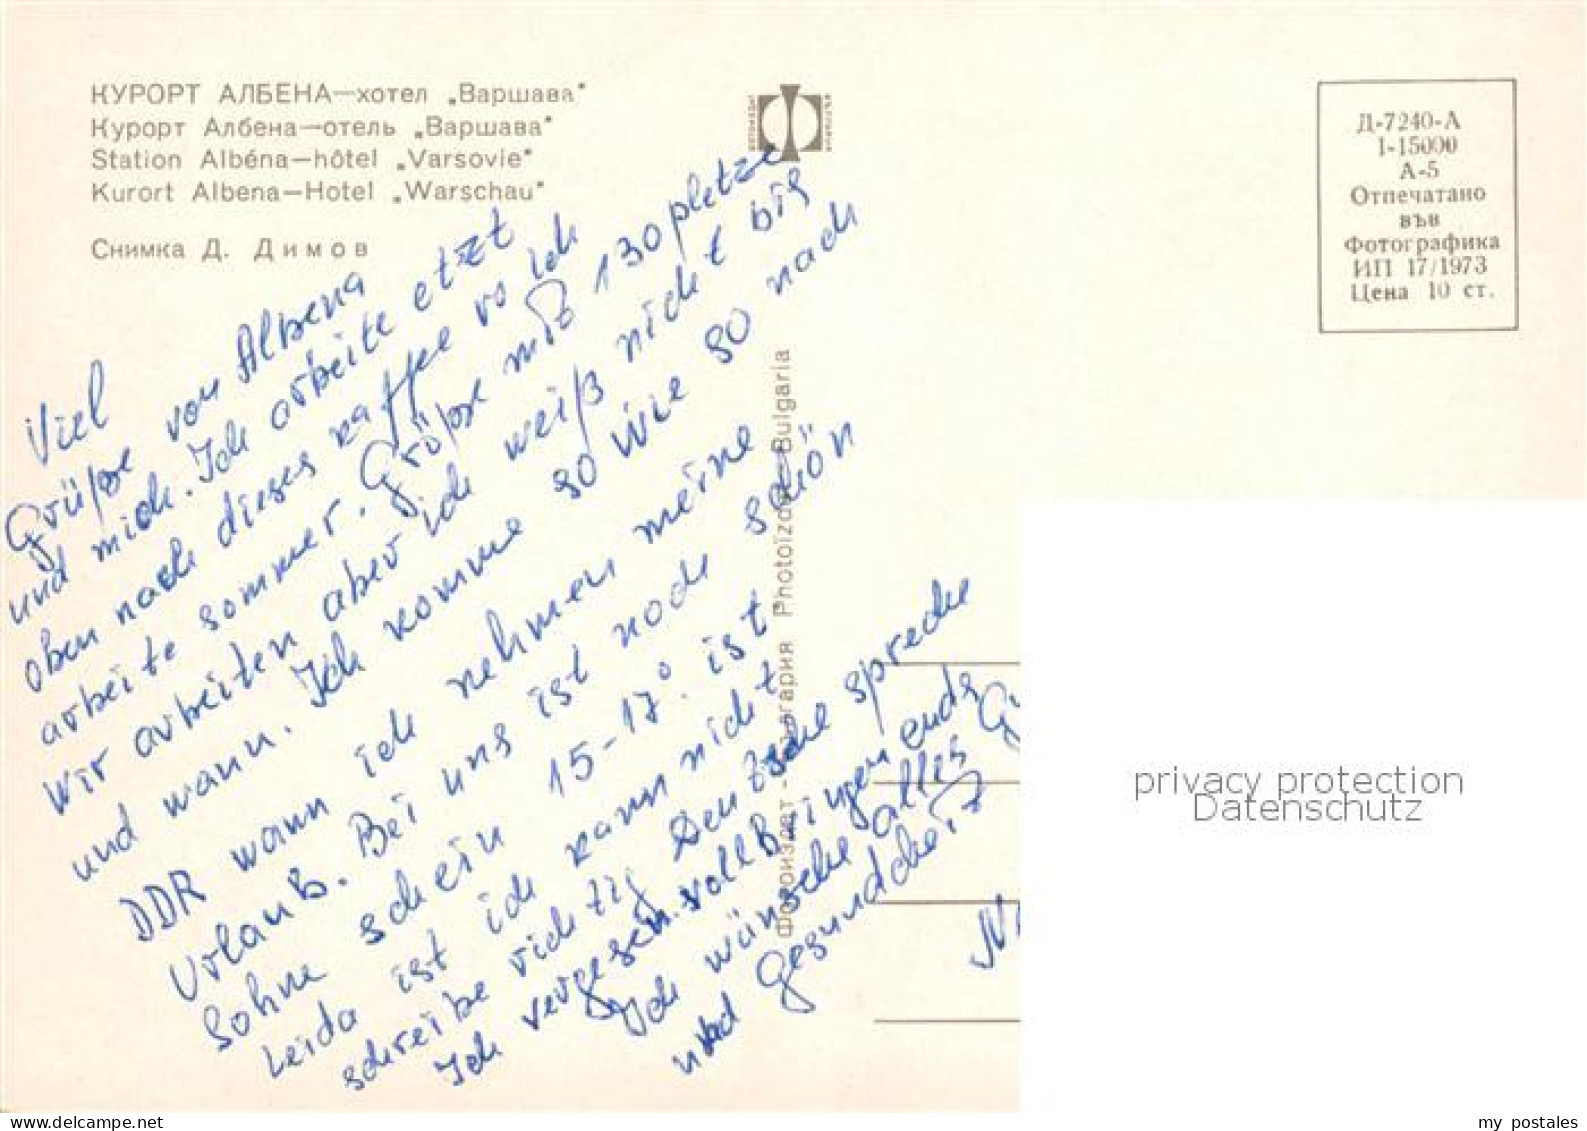 КУРОРТ АЛБЕНА—хотел „Варшава"
Курорт Албена—отель „Варшава"
Station Albéna—hôtel „Varsovie"
Kurort Albena—Hotel „Warschau"
Снимка Д. Димов
Д-7240-А
1-15000
А-5
Отпечатано
във
Фотографика
ИП 17/1973
Цена 10 ст.
Photoizdat-Bulgaria
Viel
Grüße von Albena
und mich. Ich arbeite etzt
oben nach dieses kaffee vo ich
arbeite sommer. Größe mit 130 pletze
Wir arbeiten aber ich weiß nicht bis
und wann. Ich komme so wie so nach
DDR wann ich nehmen meine
Urlaub. Bei uns ist noch schön
Sohne schein 15-17°. ist
Leida ist ich kann nicht
schreibe richtig Deutsche spreche
Ich vergesen
Ich wünsche alles G
und Gesundcheit
privacy protection
Datenschutz
my postales